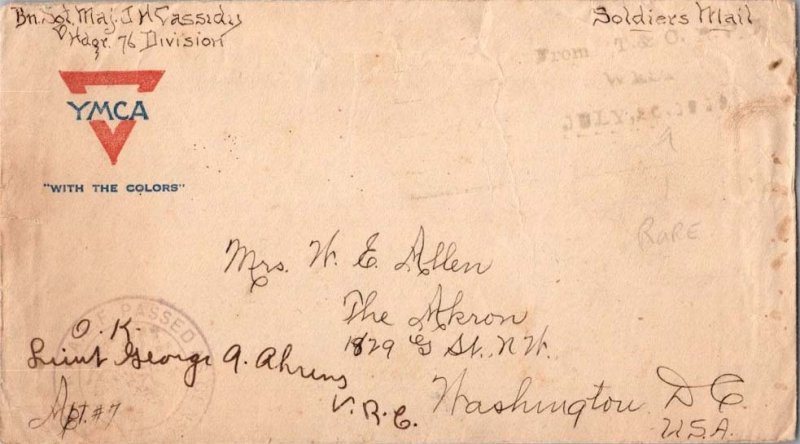 Bn. Sgt. Maj. J H Cassidy
Hdqr. 76 Division
Soldiers Mail
From T & O.
JULY
YMCA
"WITH THE COLORS"
RARE
Mrs. W. E. Allen
The Akron
1829 G St. N.W.
Washington D.C.
U.S.A.
PASSED
O.K.
Lieut George A. Ahrens
V.R.C.
Apt. #7